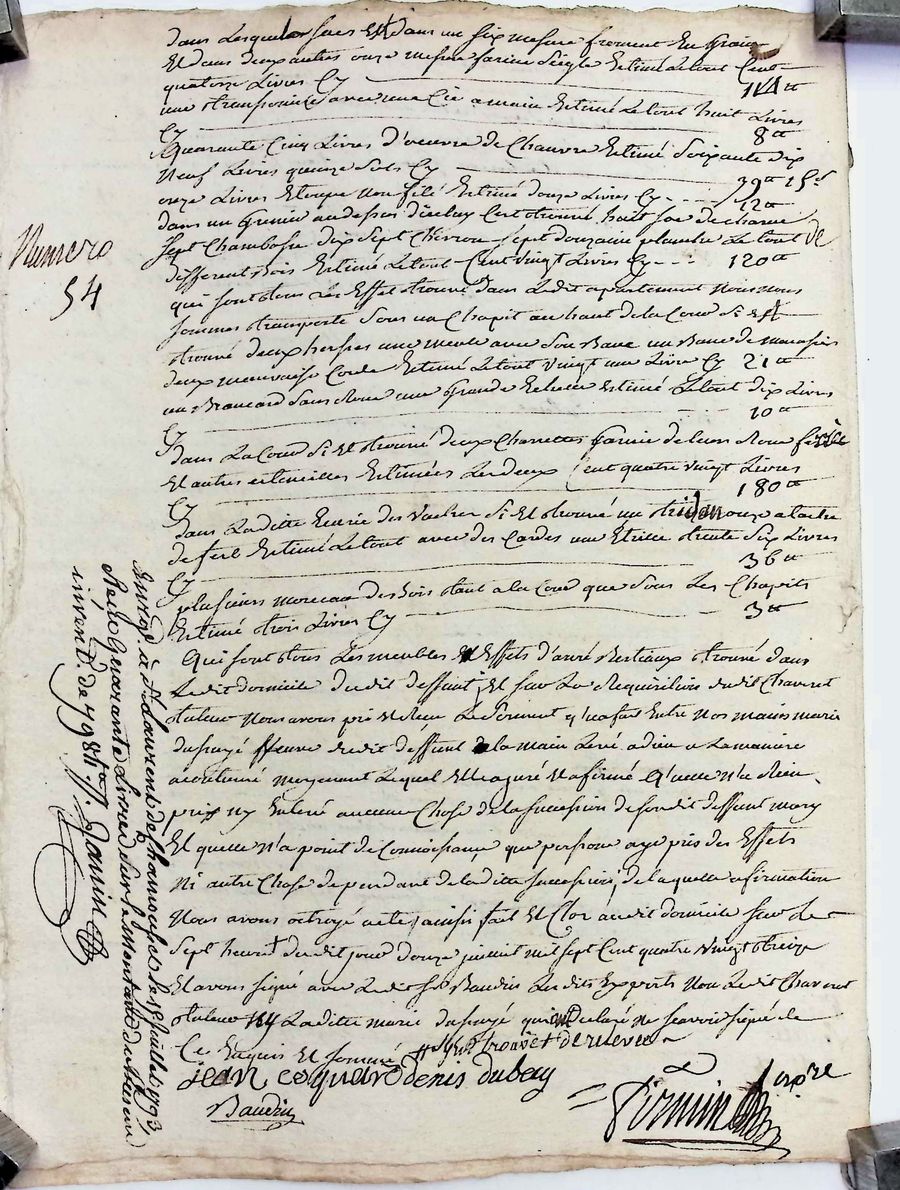 dans lesquelles sacs Est dans un six mesure froment En grain
Et dans deux autres onze mesure farine seigle Estimé Le tout Cent
quatorze Livres Cy 114 tt
une transpomiere avec une Cie a main Estimé Le tout huit Livres
Cy 8 tt
Quarante Cinq Livres d'oeuvre de Chanvre Estimé Soixante dix
Neuf Livres quinze Sols Cy 79 tt 15 s
onze Livres Etoupe Non filé Estimé douze Livres Cy 12 tt
dans un grenier au dessus d'iceluy C'est trouvé huit soc de charue
Sept Chambase dix Sept Chevron Sept douzaine planche Le tout de
different Bois Estimé Le tout Cent vingt Livres Cy 120 tt
qui sont tous les Effet trouvé dans Ledit apartement Nous nous
sommes transporté Sous un Chapit au haut de la Cour Si Est
trouvé deux herses une meule avec Son Banc un Banc de menuisier
deux mauvaise Corde Estimé Le tout vingt une Livre Cy 21 tt
un Brancard Sans Roue une grande Echelle Estimé Le tout dix Livres
Cy 10 tt
dans La Cour Si Est trouvé deux Charrettes garnie de leurs Roue
Et autres ustencilles Estimées Les deux Cent quatre vingt Livres
Cy 180 tt
Dans Laditte Ecurie des Vaches Si Est trouvé un
de ferl Estimé Le tout avec des Cardes une Etrille trente Six Livres
Cy 36 tt
plusieurs morceau des Bois tant a la Cour que Sous Les Chapits
Estimé trois Livres Cy 3 tt
Qui sont tous Les meubles Et Effets d'anré Bestiaux trouvé dans
Ledit domicile dudit deffunt, Et sur La Requisition dudit Chavenet
tuteur Nous avons pris et Reçu Le Serment qu'a fait Entre Nos mains marie
dusragé veuve dudit deffunt de la main Levé a dieu a La maniere
accoutumé moyenant Lequel Elle a juré Et afirmé Qu'elle N'a Rien
pris ny Enlevé aucune Chose de la succession de son dit deffunt mary
Et quelle N'a point de Connoissance que persone aye pris des Effets
Ni autre Chose dependant de laditte succession, de laquelle afirmation
Nous avons octroyé acte, ainsi fait Et Clos audit domicile sur Les
Sept heures dudit jour douze juillet mil Sept Cent quatre vingt treize
Et avons Signé avec Ledit Baudin Lesdits Experts Non Ledit Chavenet
tuteur Ny Laditte marie dusragé qui ont declaré ne Scavoir signé de
Ce Enquis Et Sommé
jean coquard denis dubay
Baudin
Pirmin
Numero
54
Enrégé à St Laurent de Chamousset le 27 juillet 1793,
Reçu quarante Livres sur le montant du
invent.re de 798 tt. Janin